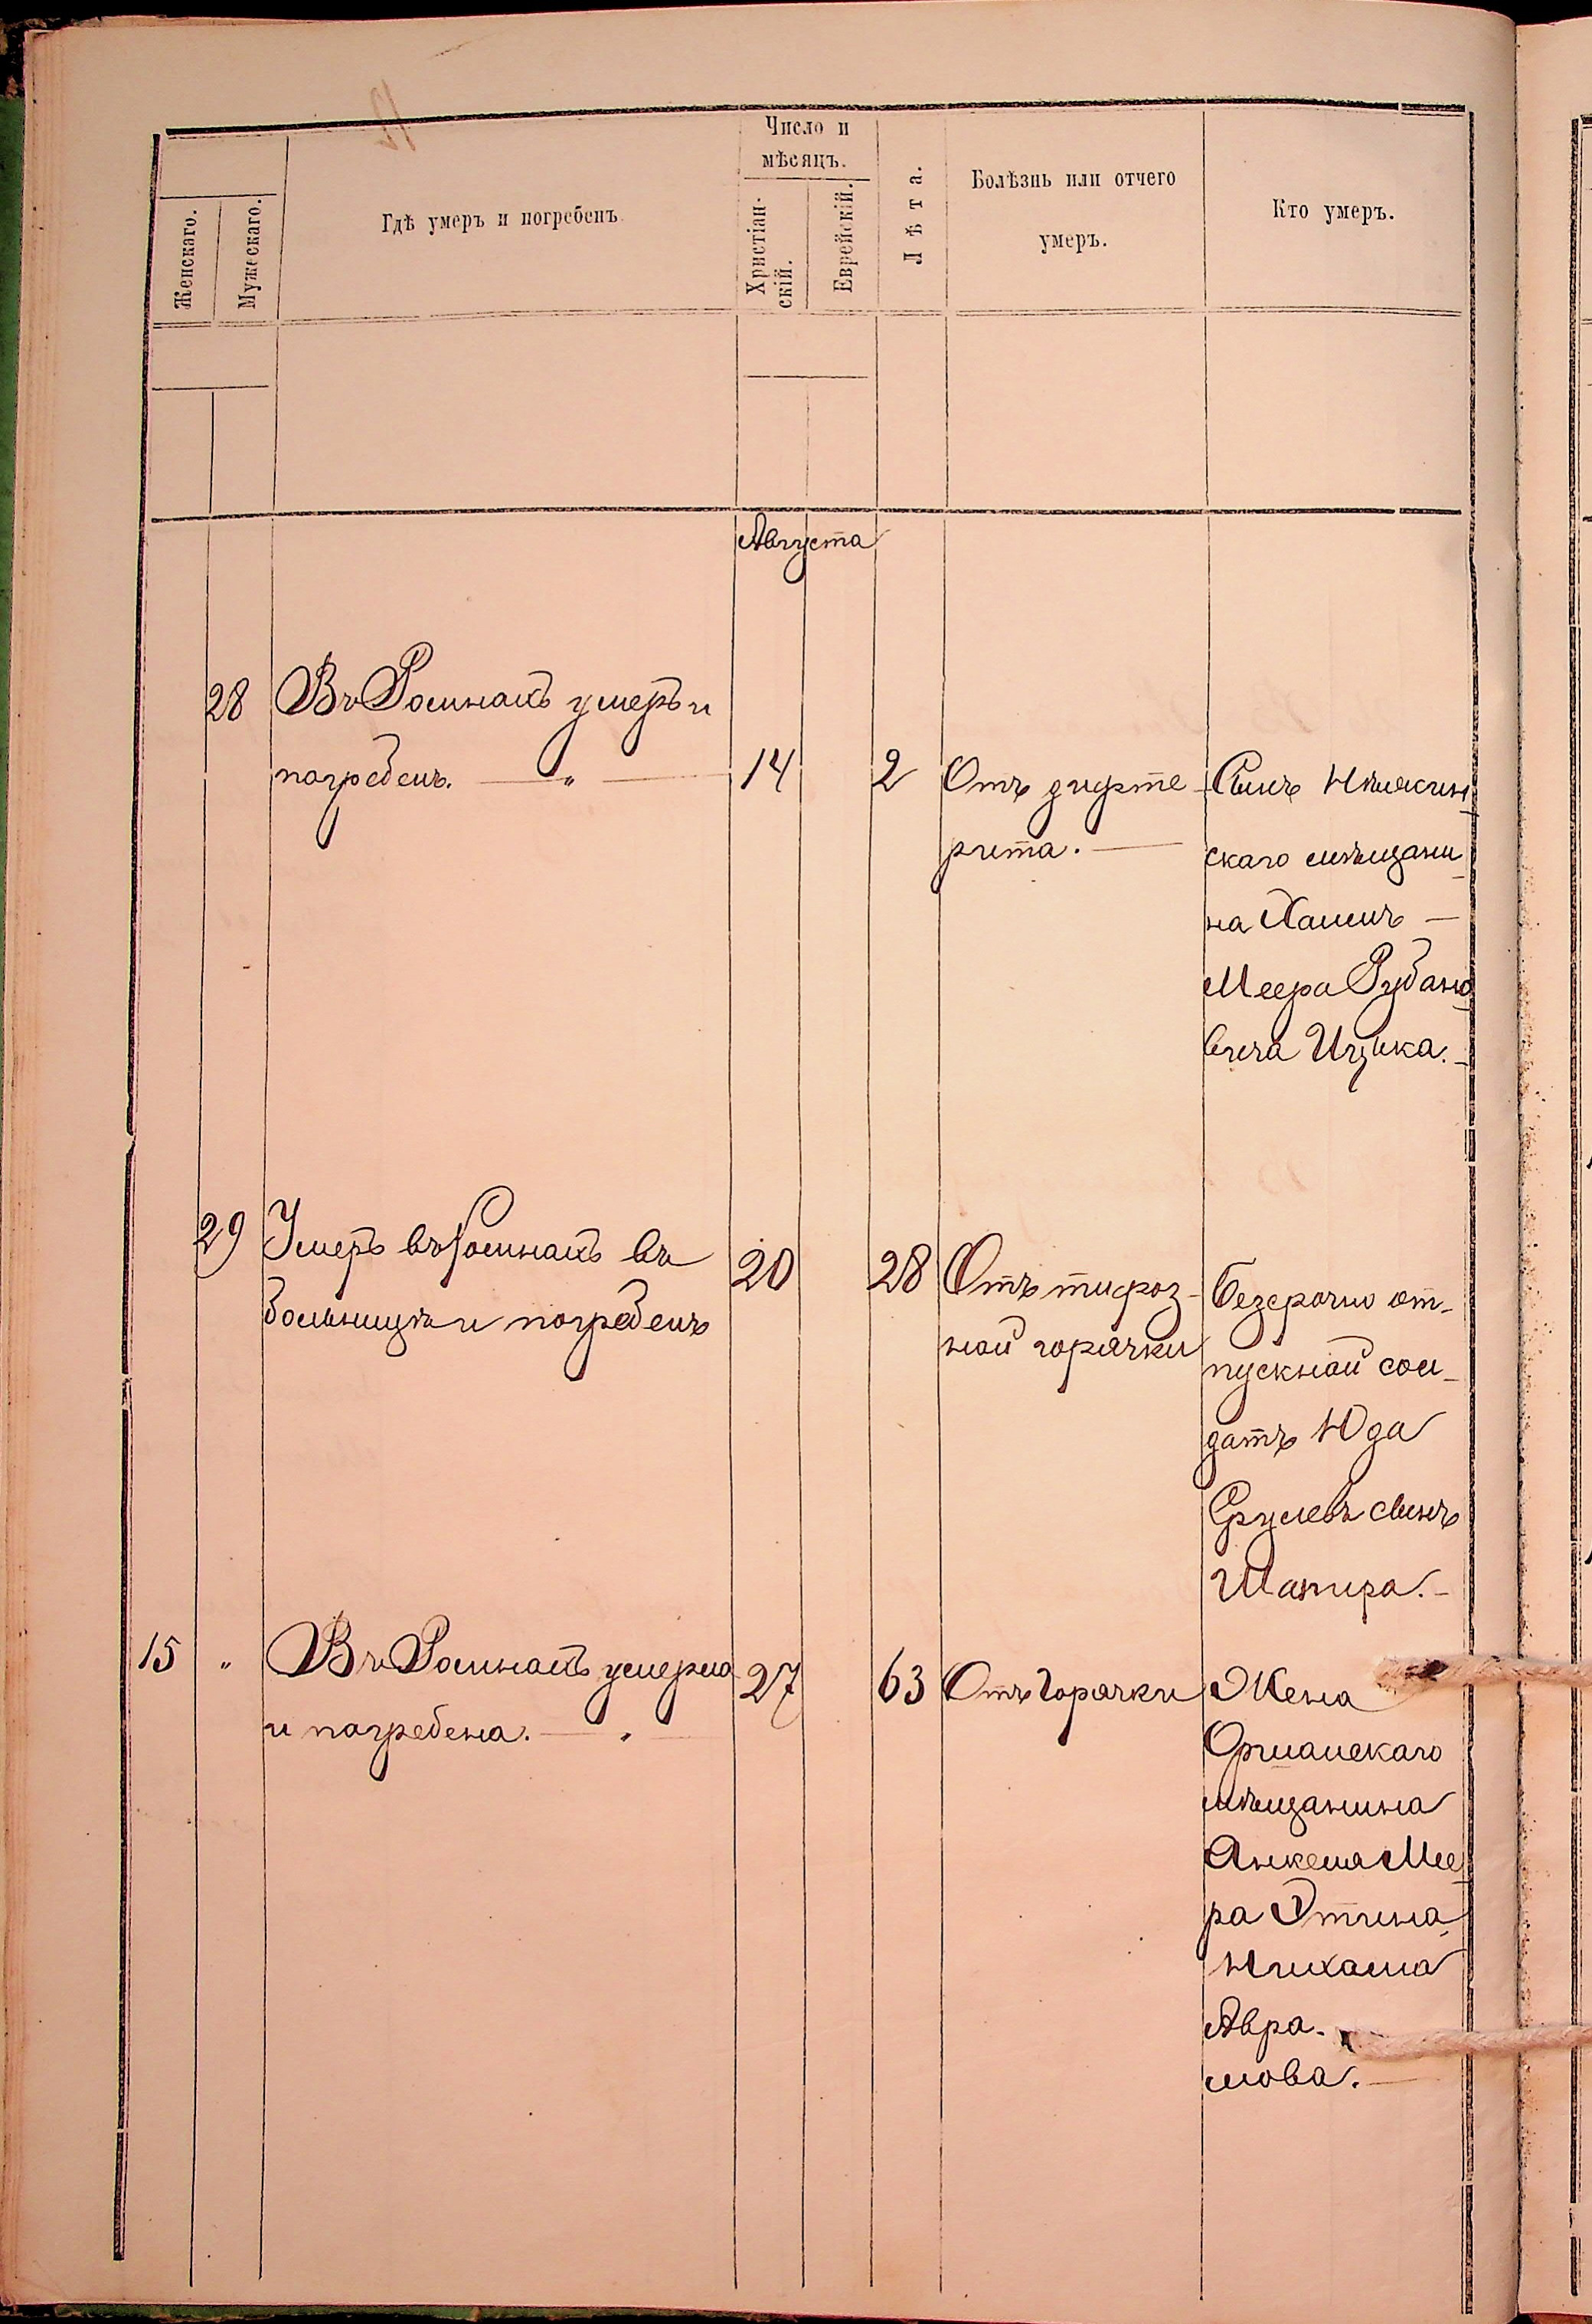 Женскаго.
Мужескаго.
Гдѣ умеръ и погребенъ
Число и
мѣсяцъ.
Христіан-
скій.
Еврейскій.
Лѣта.
Болѣзнь или отчего
умеръ.
Кто умеръ.
Августа
28
Въ Ромнахъ умеръ и
погребенъ. — „ —
14
2
Отъ дифте-
рита. —
Сынъ
скаго мѣщани-
на Хаимъ —
Меера Рубано-
вича Ицька. -
29
Умеръ въ Ромнахъ въ
больницѣ и погребенъ
20
28
Отъ тифоз-
ной горячки
безсрочно от-
пускной сол-
датъ Юда
Срулевъ сынъ
Шапира. -
15
„
Въ Ромнахъ умерла
и погребена. — „ —
27
63
Отъ горячки
Жена
Оршанскаго
мѣщанина
Янкеля Мее-
ра Этина
Авра-
мова. —